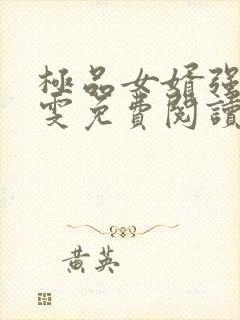 極品女婿強
雯免費閱讀
黃英